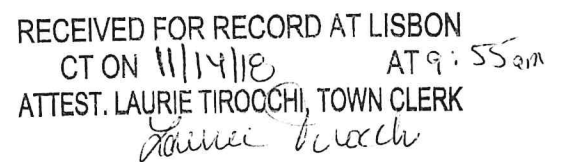 RECEIVED FOR RECORD AT LISBON
CT ON 11/14/18 AT 9:55am
ATTEST. LAURIE TIROCCHI, TOWN CLERK
Laurie Tirocchi